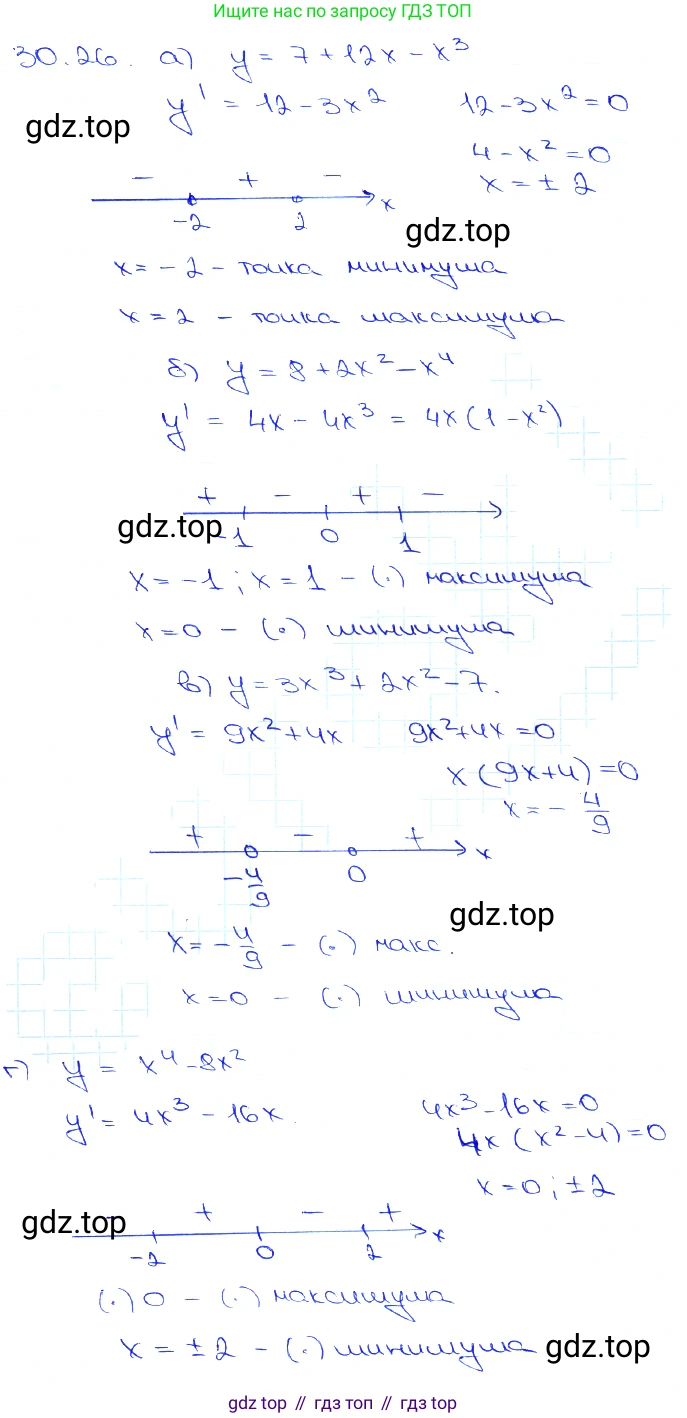 Ищите нас по запросу ГДЗ ТОП
30.26. а) y = 7 + 12x - x³
y' = 12 - 3x² 12 - 3x² = 0
gdz.top
4 - x² = 0
- + - x = ± 2
-2 2 x
gdz.top
x = -2 - точка минимума
x = 2 - точка максимума
б) y = 8 + 2x² - x⁴
y' = 4x - 4x³ = 4x(1 - x²)
+ - + -
gdz.top -1 0 1
x = -1 ; x = 1 - (·) максимума
x = 0 - (·) минимума
в) y = 3x³ + 2x² - 7.
y' = 9x² + 4x 9x² + 4x = 0
x(9x + 4) = 0
x = - 4/9
+ - + x
-4/9 0
gdz.top
x = -4/9 - (·) макс.
x = 0 - (·) минимума
г) y = x⁴ - 8x²
y' = 4x³ - 16x. 4x³ - 16x = 0
4x(x² - 4) = 0
x = 0 ; ± 2
gdz.top + - + x
-2 0 2
(·) 0 - (·) максимума
x = ± 2 - (·) минимума gdz.top
gdz top // гдз топ // gdz top